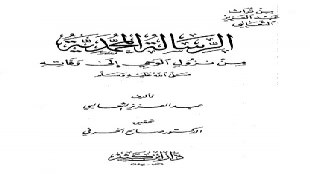 من تراث
عبد العزيز
الثعالبي
الرسالة المحمدية
من نزول الوحي إلى وفاته
صلى الله عليه وسلم
تأليف
عبد العزيز الثعالبي
تحقيق
الدكتور صالح الخرفي
دار ابن كثير